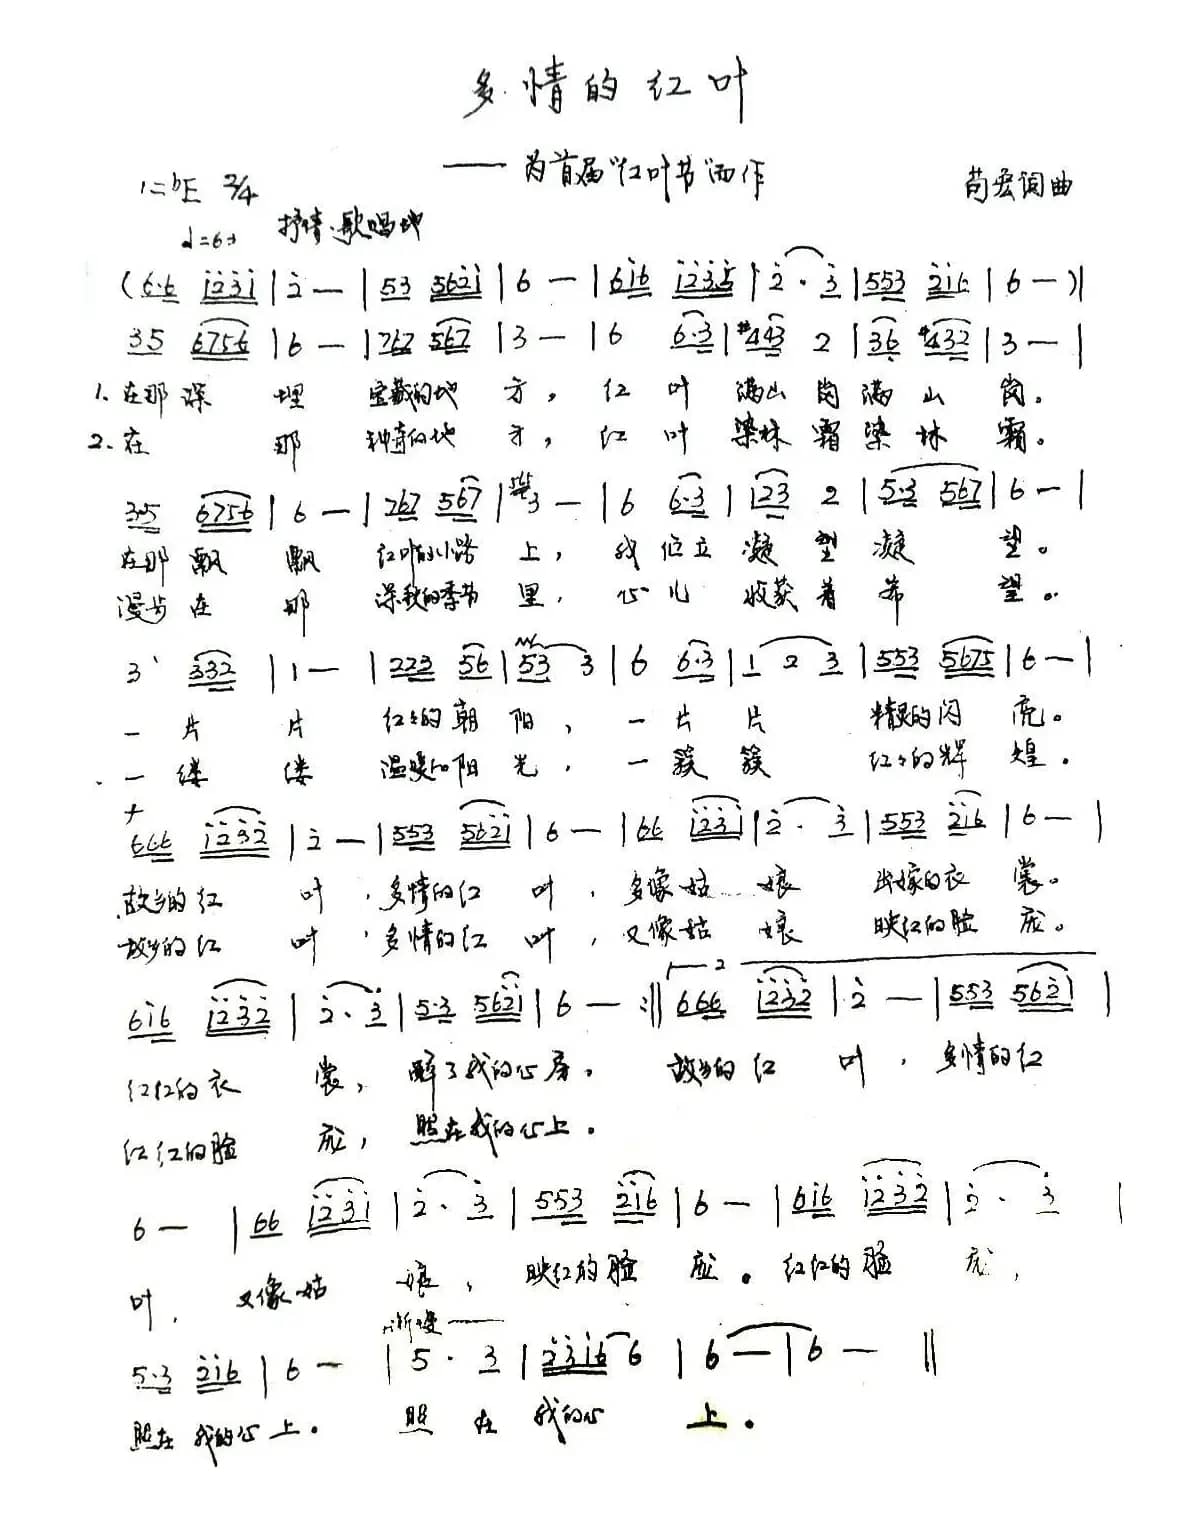 多情的红叶
——为首届“红叶节”而作
1=bE 2/4
苟宏词曲
抒情.歌唱地
(6·6 i̇2̇3̇i̇ | 2̇ — | 53 562̇i̇ | 6 — | 6i̇6 i̇2̇3̇5 | 2̇ · 3̇ | 553 2̇i̇6 | 6 — )|
35 6756 | 6 — | 767 567 | 3 — | 6 6·3 | #443 2 | 36 #432 | 3 — |
1. 在那深埋宝藏的地方, 红叶满山岗满山岗。
2. 在那神奇的地方, 红叶染林霜染林霜。
3·5 6756 | 6 — | 767 567 | 3 — | 6 6·3 | 123 2 | 5·3 567 | 6 — |
在那飘飘红叶的小路上, 我伫立凝望凝望。
漫步在那深秋的季节里, 心儿收获着希望。
3 332 | 1 — | 223 56 | 53 3 | 6 6·3 | 1 2 3 | 553 5675 | 6 — |
一片片红红的朝阳, 一片片精灵的闪亮。
一缕缕温暖的阳光, 一簇簇红红的辉煌。
666 i̇2̇3̇2̇ | 2̇ — | 553 562̇i̇ | 6 — | 66 i̇2̇3̇i̇ | 2̇ · 3̇ | 553 2̇i̇6 | 6 — |
故乡的红叶, 多情的红叶, 多像姑娘出嫁的衣裳。
故乡的红叶, 多情的红叶, 又像姑娘映红的脸庞。
6i̇6 i̇2̇3̇2̇ | 2̇ · 3̇ | 5·3 562̇i̇ | 6 — :‖ 2 666 i̇2̇3̇2̇ | 2̇ — | 553 562̇i̇ |
红红的衣裳, 醉了我的心房。 故乡的红叶, 多情的红
红红的脸庞, 照在我的心上。
6 — | 66 i̇2̇3̇i̇ | 2̇ · 3̇ | 553 2̇i̇6 | 6 — | 6i̇6 i̇2̇3̇2̇ | 2̇ · 3̇ |
叶, 又像姑娘, 映红的脸庞。红红的脸庞,
渐慢——
5·3 2̇i̇6 | 6 — | 5 · 3 | 2̇3̇i̇6 6 | 6 — | 6 — ‖
照在我的心上。 照在我的心上。